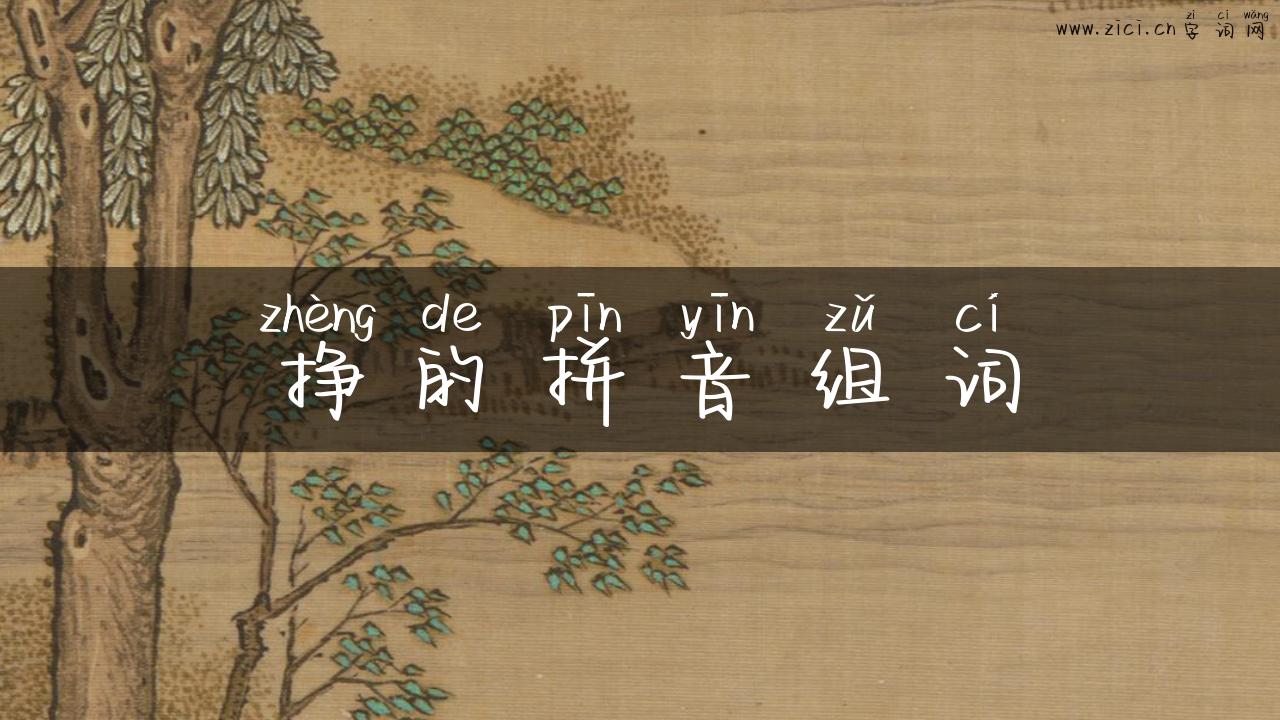 zì cí wǎng
www.zici.cn 字词网
zhèng de pīn yīn zǔ cí
挣的拼音组词